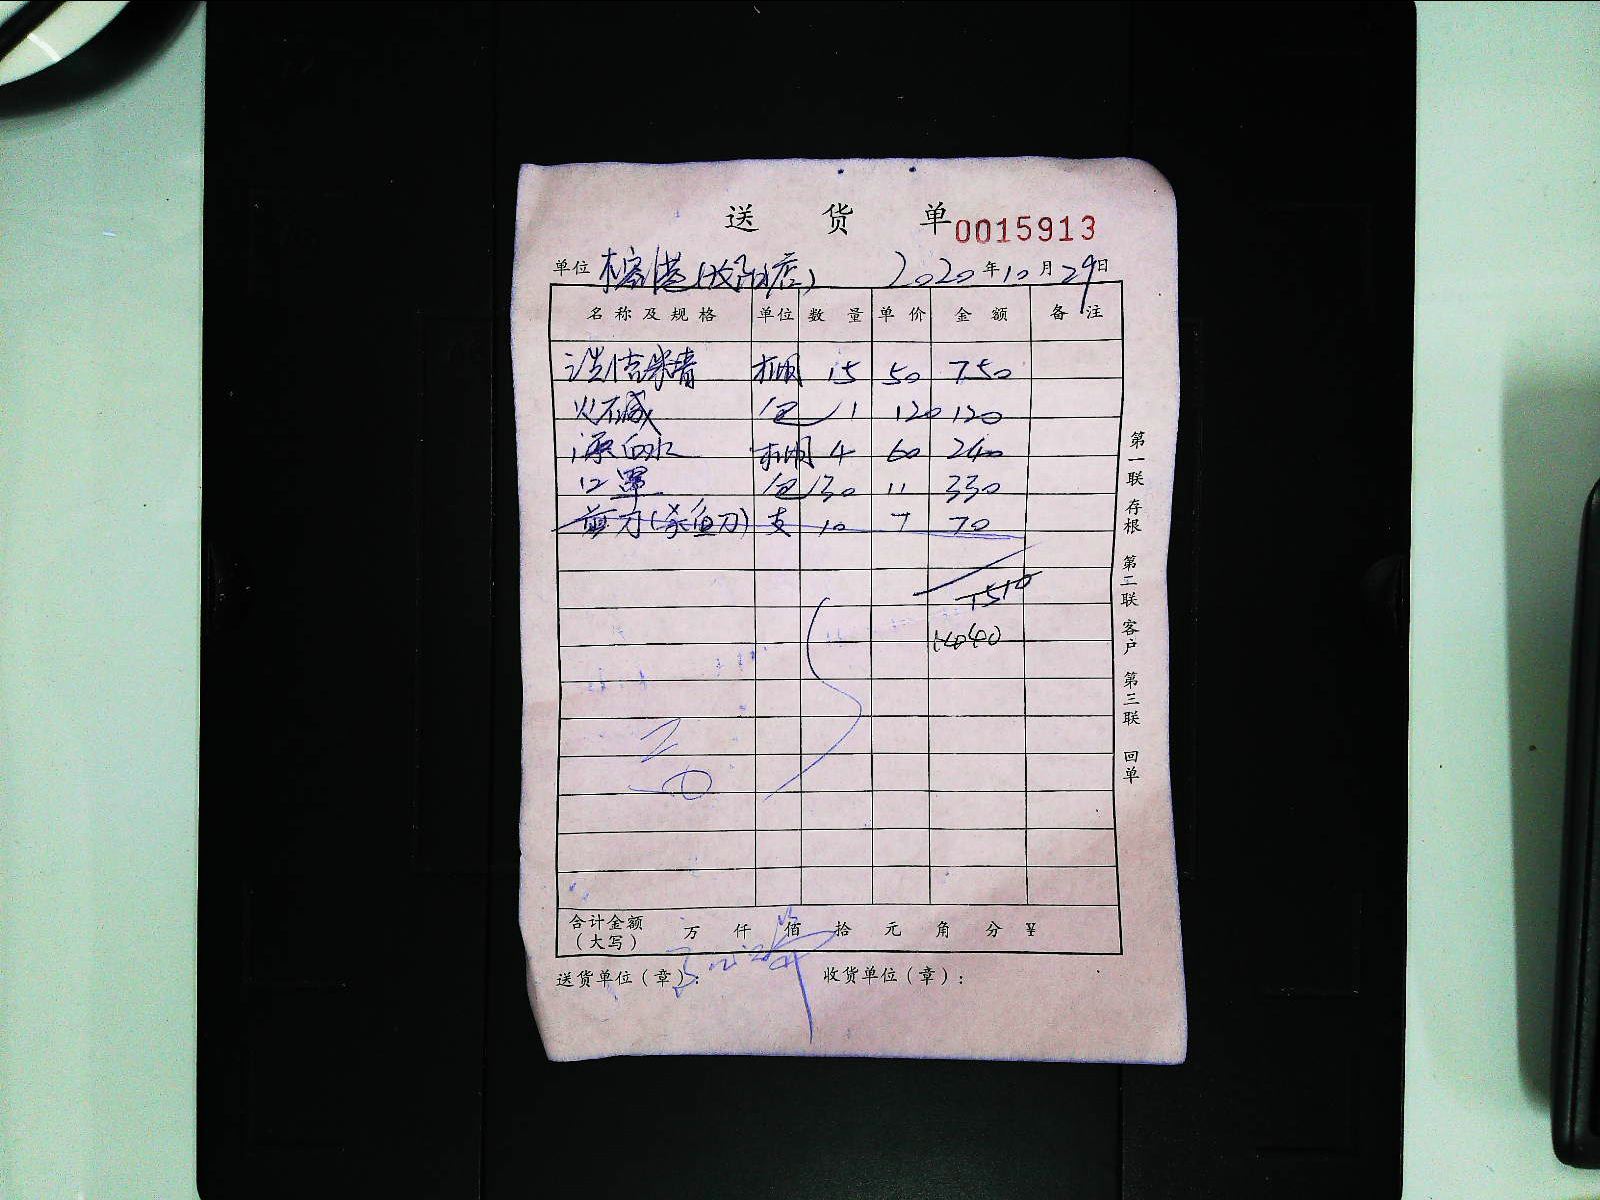 送 货 单 0015913
单位 榕港(汝阳店) 2020年10月29日
名称及规格 单位 数量 单价 金额 备注
洗洁精 桶 15 50 750
火碱 包 1 120 120
漂白水 桶 4 60 240
口罩 包 30 11 330
剪刀(杀鱼刀) 支 10 7 70
1510
1440
合计金额(大写) 万 仟 佰 拾 元 角 分 ¥
送货单位(章): 收货单位(章):
第一联 存根 第二联 客户 第三联 回单